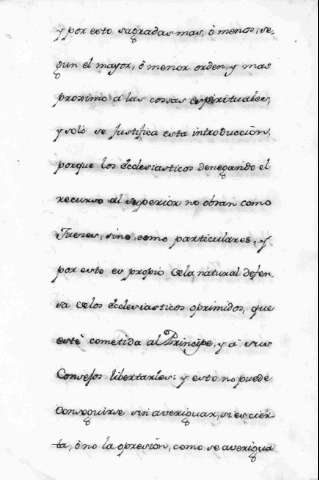 y por esto sagradas mas, ò menos, se-
gun el mayor, ò menor orden, y mas
proximo a las cossas espirituales,
y solo se Justifica esta introduccion,
porque los Ecclesiasticos denegando el
recurso al superior no obran como
Jueses, sino como particulares, y
por esto es propio de la natural defen
sa de los Ecclesiasticos oprimidos, que
esté cometida al Principe, y a sus
Consejos libertarles: y esto no puede
Conseguirse sin averiguar, si es cier
ta, ò no la opresion, como se averigua